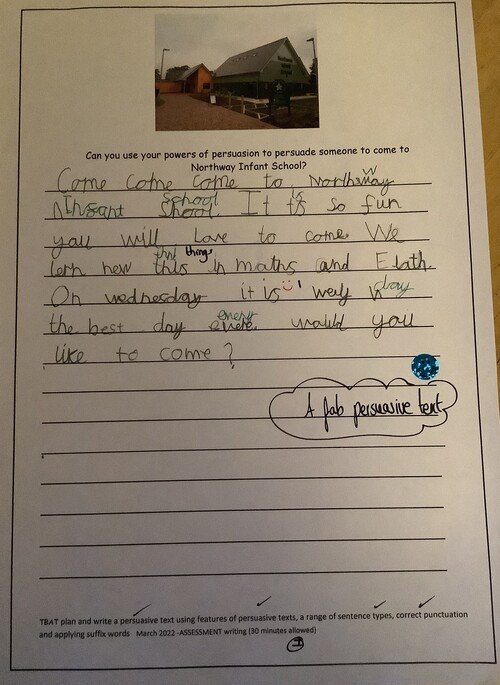 Northway
Infant
School
Can you use your powers of persuasion to persuade someone to come to
Northway Infant School?
Come Come Come to Northway
Infant School It is so fun
you will Love to come We
lern new things in maths and
On wednesday it is day
the best day every would you
like to come?
A fab persuasive text
TBAT plan and write a persuasive text using features of persuasive texts, a range of sentence types, correct punctuation
and applying suffix words March 2022 -ASSESSMENT writing (30 minutes allowed)
I